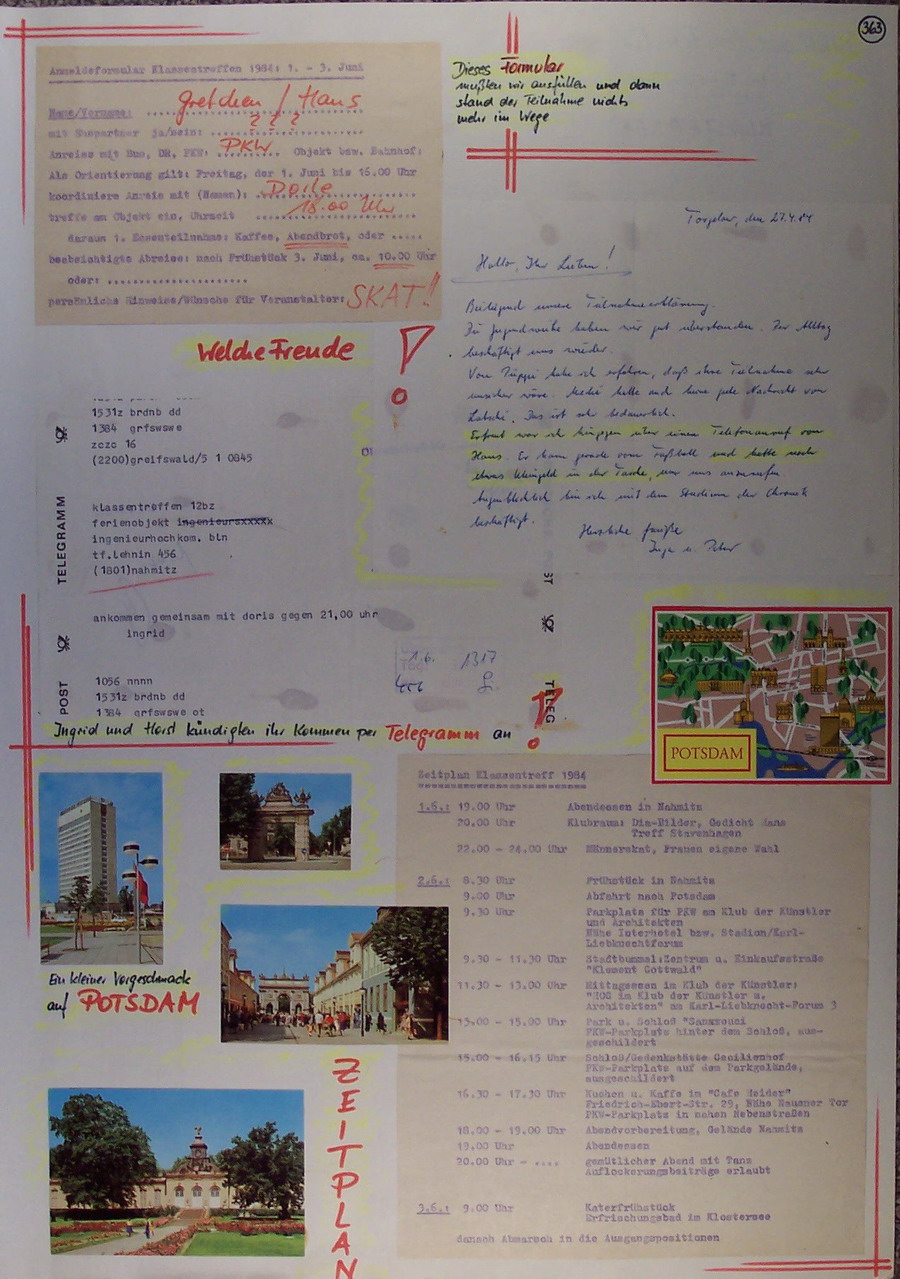 363
Anmeldeformular Klassentreffen 1984: 1. - 3. Juni
Name/Vorname: Gretchen / Hans
mit Ehepartner ja/nein: ???
Anreise mit Bus, DR, PKW: PKW Objekt bzw. Bahnhof:
Als Orientierung gilt: Freitag, der 1. Juni bis 16.00 Uhr
koordiniere Anreise mit (Namen):
treffe am Objekt ein, Uhrzeit 18.00 Uhr
daraus 1. Essenteilnahme: Kaffee, Abendbrot, oder .....
beabsichtigte Abreise: nach Frühstück 3. Juni, ca. 10.00 Uhr
oder: ......................
persönliche Hinweise/Wünsche für Veranstalter: SKAT!!
Dieses Formular
mußten wir ausfüllen und dann
stand der Teilnahme nichts
mehr im Wege
Welche Freude !
Torgelow, den 27.4.84
Hallo, Ihr Lieben!
Beiliegend unsere Teilnahmeerklärung.
Die Jugendweihe haben wir gut überstanden. Der Alltag
beschäftigt uns wieder.
Von Püppi habe ich erfahren, daß ihre Teilnahme sehr
unsicher wäre. hatte auch keine gute Nachricht von
Latschi. Das ist sehr bedauerlich.
Erfreut war ich hingegen über einen Telefonanruf von
Hans. Er kam gerade vom Fußball und hatte noch
etwas Kleingeld in der Tasche, um uns anzurufen.
Augenblicklich bin ich mit dem Studium der Chronik
beschäftigt.
Herzliche Grüße
Inge u. Peter
TELEGRAMM
POST
1531z brdnb dd
1384 grfswswe
zczc 16
(2200)greifswald/5 1 0845
klassentreffen 12bz
ferienobjekt ingenieursxxxxx
ingenieurhochkom. bln
tf.lehnin 456
(1801)nahmitz
ankommen gemeinsam mit doris gegen 21,00 uhr
ingrid
1056 nnnn
1531z brdnb dd
1384 grfswswe ot
1.6. 1317
TELEG
Ingrid und Horst kündigten ihr Kommen per Telegramm an !
POTSDAM
Ein kleiner Vorgeschmack
auf POTSDAM
ZEITPLAN
Zeitplan Klassentreff 1984
1.6.: 19.00 Uhr Abendessen in Nahmitz
20.00 Uhr Klubraum: Dia-Bilder, Gedicht Hans
Treff Stavenhagen
22.00 - 24.00 Uhr Männerskat, Frauen eigene Wahl
2.6.: 8.30 Uhr Frühstück in Nahmitz
9.00 Uhr Abfahrt nach Potsdam
9.30 Uhr Parkplatz für PKW am Klub der Künstler
und Architekten
Nähe Interhotel bzw. Stadion/Karl-
Liebknechtforum
9.30 - 11.30 Uhr Stadtbummel:Zentrum u. Einkaufsstraße
"Klement Gottwald"
11.30 - 13.00 Uhr Mittagessen im Klub der Künstler:
im Klub der Künstler u.
Architekten" am Karl-Liebknecht-Forum 3
13.00 - 15.00 Uhr Park u. Schloß "Sanssouci
PKW-Parkplatz hinter dem Schloß, aus-
geschildert
15.00 - 16.15 Uhr Schloß/Gedenkstätte Cecilienhof
PKW-Parkplatz auf dem Parkgelände,
ausgeschildert
16.30 - 17.30 Uhr Kuchen u. Kaffe im "Cafe Heider"
Friedrich-Ebert-Str. 29, Nähe Nauener Tor
PKW-Parkplatz in nahen Nebenstraßen
18.00 - 19.00 Uhr Abendvorbereitung, Gelände Nahmitz
19.00 Uhr Abendessen
20.00 Uhr - .... gemütlicher Abend mit Tanz
Auflockerungsbeiträge erlaubt
3.6.: 9.00 Uhr Katerfrühstück
Erfrischungsbad im Klostersee
danach Abmarsch in die Ausgangspositionen